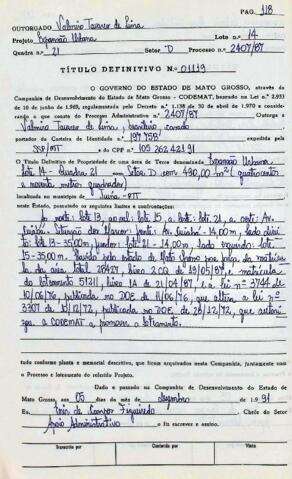 PAG. 118
OUTORGADO Valmiro Tavares de Lima
Projeto Expansão Urbana Lote n.o 14
Quadra n.o 21 Setor D Processo n.o 2407/87
TÍTULO DEFINITIVO N.o 01119
O GOVERNO DO ESTADO DE MATO GROSSO, através da
Companhia de Desenvolvimento do Estado de Mato Grosso - CODEMAT, baseado na Lei n.o 2.933
de 10 de junho de 1969, regulamentada pelo Decreto n.o 1.138 de 30 de abril de 1970 e considerando
o que consta do Processo Administrativo n.o 2407/87 Outorga a
Valmiro Tavares de Lima, brasileiro, casado
portador da Carteira de Identidade n.o 197458 expedida pela
SSP/MT e do CPF n.o 105 262 421 91
O Título Definitivo de Propriedade de uma área de Terra denominada Expansão Urbana
Lote 14 - Quadra 21 Setor D com 490,00 m² (quatrocentos
e noventa metros quadrados)
localizada no município de Juína - MT
neste Estado, passando os seguintes limites e confrontações:
Ao norte: lote 13, ao sul: lote 15, a leste: lote 21, a oeste: Av.
frente: Av. - 14,00m, lado direi-
to: lote 13 - 35,00m, fundo: lote 21 - 14,00m, lado esquerdo: lote
15 - 35,00m. Havido pelo Estado de Mato Grosso por força da matrícu-
la da área total 28427, livro 2CQ de 19/05/87, e matrícula
do loteamento 51211, livro 1A de 21/04/87, e a lei nº 3744 de
10/06/76, publicada no DOE de 11/06/76, que altera a lei nº
3307 de /12/72, publicada no DOE de 28/12/72, que autori-
za a CODEMAT a promover o loteamento.
tudo conforme planta e memorial descritivo, que ficam arquivados nesta Companhia, juntamente com
o Processo e loteamento do referido Projeto.
Dado e passado na Companhia de Desenvolvimento do Estado de
Mato Grosso, aos 05 dias do mês de dezembro de 1.991
Eu, de Campos Figueiredo Chefe do Setor
Apoio Administrativo o fiz escrever e assino.
Transcrito por Conferido por Visto